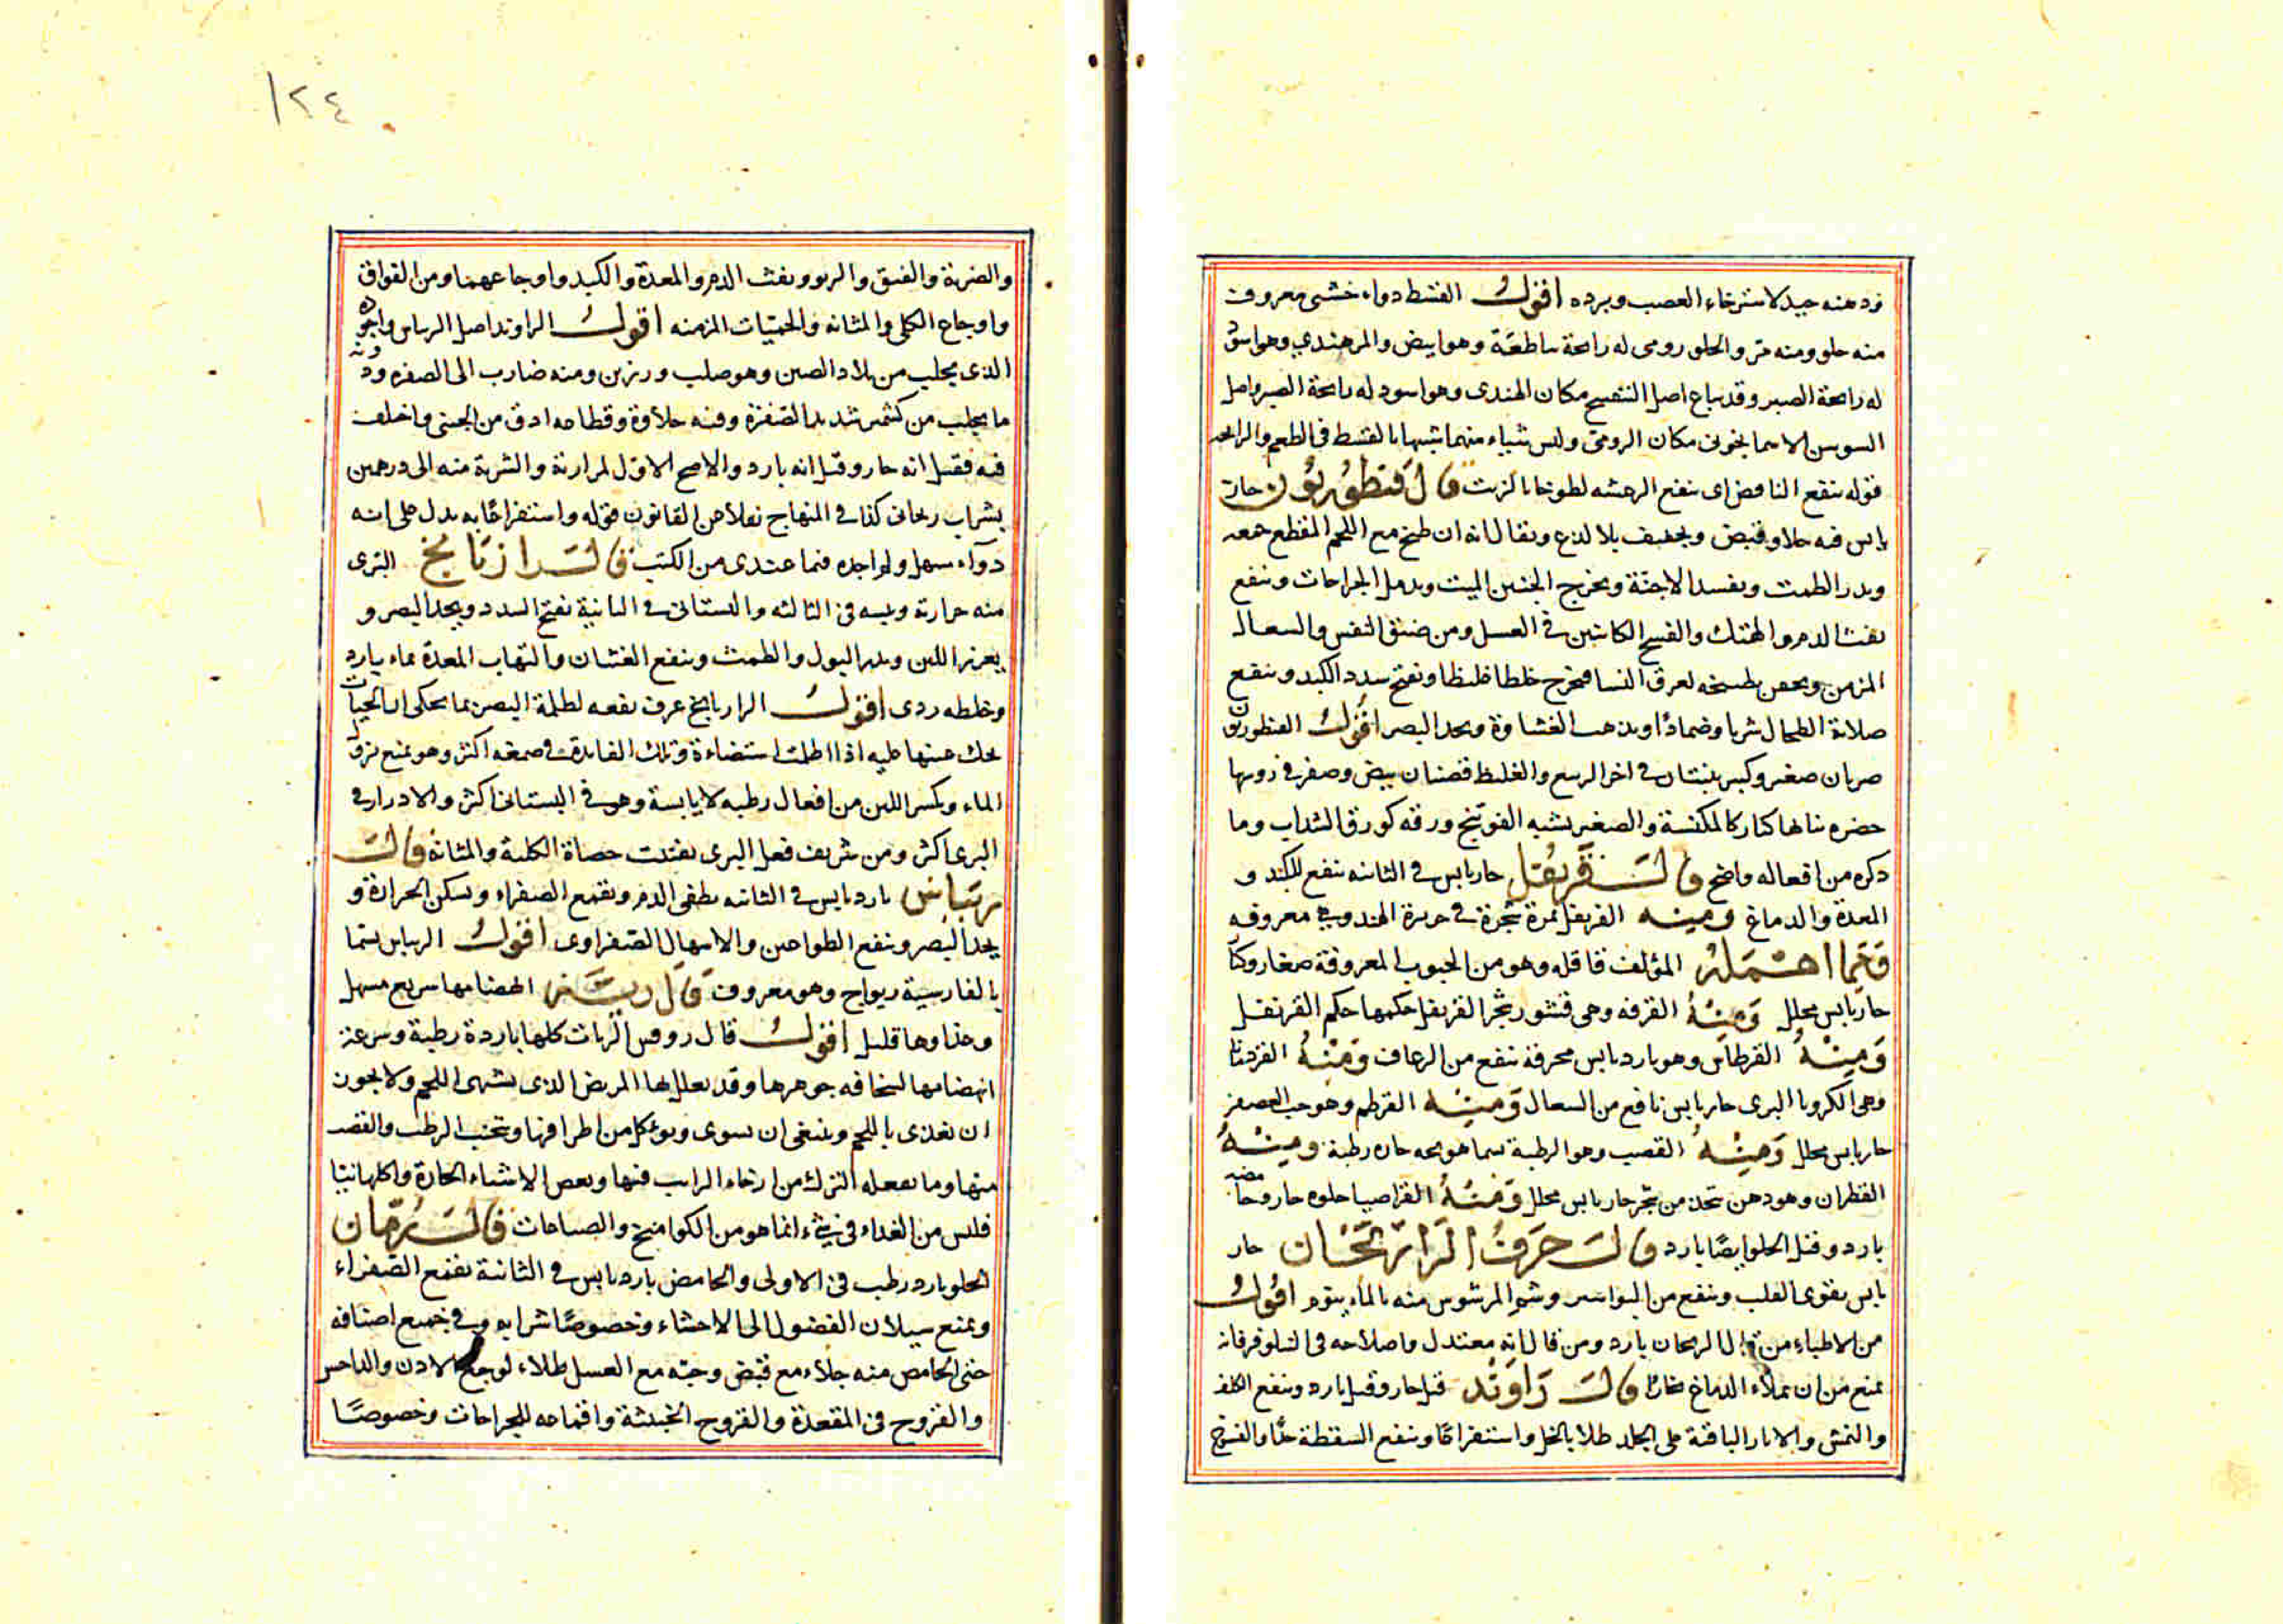 ودهنه جيد لاسترخاء العصب وبرده اقول القسط دواء خشبى معروف
منه حلو ومنه مر والحلو رومى له رائحة ساطعة وهو ابيض والمر هندي وهو اسود
له رائحة الصبر وقد يباع اصل مكان الهندى وهو اسود له رائحة الصبر واصل
السوسن الاسمانجونى مكان الرومى وليس شياء منهما شبيها بالقسط فى الطعم والرائحه
قوله ينفع النافض اى ينفع الرعشه لطوخا بالزيت قال قنطوريون حار
يابس فيه جلاء وقبض وتجفيف بلا لدع ويقال انه ان طبخ مع اللحم المقطع جمعه
ويدر الطمث ويفسد الاجنة ويخرج الجنين الميت ويدمل الجراحات وينفع
نفث الدم والهتك والفسخ الكائنين فى العسل ومن ضيق النفس والسعال
المزمن ويحقن بطبيخه لعرق النسا فيخرج خلطا غليظا ويفتح سدد الكبد وينفع
صلابة الطحال شربا وضمادا ويذهب الغشاوة ويحد البصر اقول القنطوريون
ضربان صغير وكبير ينبتان فى اخر الربيع والغليظ قضبان بيض وصفر فى روسها
خضره نباتها كبار كالمكنسة والصغير يشبه الفوتنج ورقه كورق السداب وما
ذكره من افعاله واضح قال قرنفل حار يابس فى الثانيه ينفع للكبد و
المعدة والدماغ ومنه القرنفل ثمرة شجرة فى جزيرة الهند وهي معروفه
ومما اهمله المؤلف قاقله وهو من الحبوب المعروفة صغار وكبار
حار يابس محلل ومنه القرفه وهى قشور شجر القرنفل حكمها حكم القرنفل
ومنه القرطاس وهو بارد يابس محرقة ينفع من الرعاف ومنه القردمانا
وهى الكرويا البرى حار يابس نافع من السعال ومنه القرطم وهو حب العصفر
حار يابس محلل ومنه القصب وهو الرطبة حاره رطبة ومنه
القطران وهو دهن يتخذ من شجر حار يابس محلل ومنه القراصيا حلوه حار وحامضه
بارد وقيل الحلو ايضا بارد قال حرف الراء ريحان حار
يابس يقوى القلب وينفع من البواسير وشم المرشوش منه بالماء ينوم اقول
من الاطباء من قال الريحان بارد ومن قال انه معتدل واصلاحه فى النيلوفر فانه
يمنع من ان يملاء الدماغ بخارا قال راوند قيل حار وقيل بارد وينفع الكلف
والنمش والاثار الباقية على الجلد طلا بالخل واستفراغا وينفع السقطة جدا والفسخ
والضربة والفتق والربو ونفث الدم والمعدة والكبد واوجاعهما ومن الفواق
واوجاع الكلى والمثانه والحميات المزمنه اقول الراوند اصل الريباس واجوده
الذى يجلب من بلاد الصين وهو صلب ورزين ومنه ضارب الى الصفره ودونه
ما يجلب من كشمير شديد الصفرة وفيه حلاوة وقطاعه ادق من الجينى واختلف
فيه فقيل انه حار وقيل انه بارد والاصح الاول لمرارته والشربة منه الى درهمين
بشراب ريحانى كذا فى المنهاج نقلا عن القانون قوله واستفراغا به يدل على انه
دوآء مسهل ولم اجده فيما عندى من الكتب قال رازيانج البرى
منه حرارته ويبسه فى الثالثه والبستانى فى الثانية يفتح السدد ويحد البصر و
يغزر اللبن ويدر البول والطمث وينفع الغشيان والتهاب المعدة بماء بارد
وخلطه ردى اقول الرازيانج عرف نفعه لظلمة البصر بما يحكى ان الحيات
تحك عينها عليه اذا اظلمت استضاءة وتلك الفايدة فى صمغه اكثر وهو يمنع نزول
الماء وتكثير اللبن من افعال رطبه لا يابسة وهو فى البستانى اكثر والادرار فى
البرى اكثر ومن شريف فعل البرى تفتت حصاة الكلية والمثانة قال
ريباس بارد يابس فى الثانيه يطفى الدم ويقمع الصفراء ويسكن الحرارة و
يحد البصر وينفع الطواعين والاسهال الصفراوى اقول الريباس يسما
بالفارسية ريواج وهو معروف قال ريه انهضامها سريع سهل
وغذاوها قليل اقول قال روفس الريات كلها باردة رطبة وسرعة
انهضامها لسخافه جوهرها وقد يعلل بها المريض الذى يشتهى اللحم ولا يجوز
ان يغذى باللحم وينبغى ان تسوى ويؤكل من اطرافها ويتجنب الرطب والقصب
منها وما يفعله الترك من ارخاء الرايب فيها وبعض الاشياء الحارة واكلها نيئا
فليس من الغداء فى شئ انما هو من الكواميخ والصباغات قال رمان
الحلو بارد رطب فى الاولى والحامض بارد يابس فى الثانية يقمع الصفراء
ويمنع سيلان الفضول الى الاحشاء وخصوصا شرابه وفى جميع اصنافه
حتى الحامض منه جلاء مع قبض وحبه مع العسل طلاء لوجع الاذن والداحس
والقروح فى المقعدة والقروح الخبيثة واقماعه للجراحات وخصوصا
١٢٤